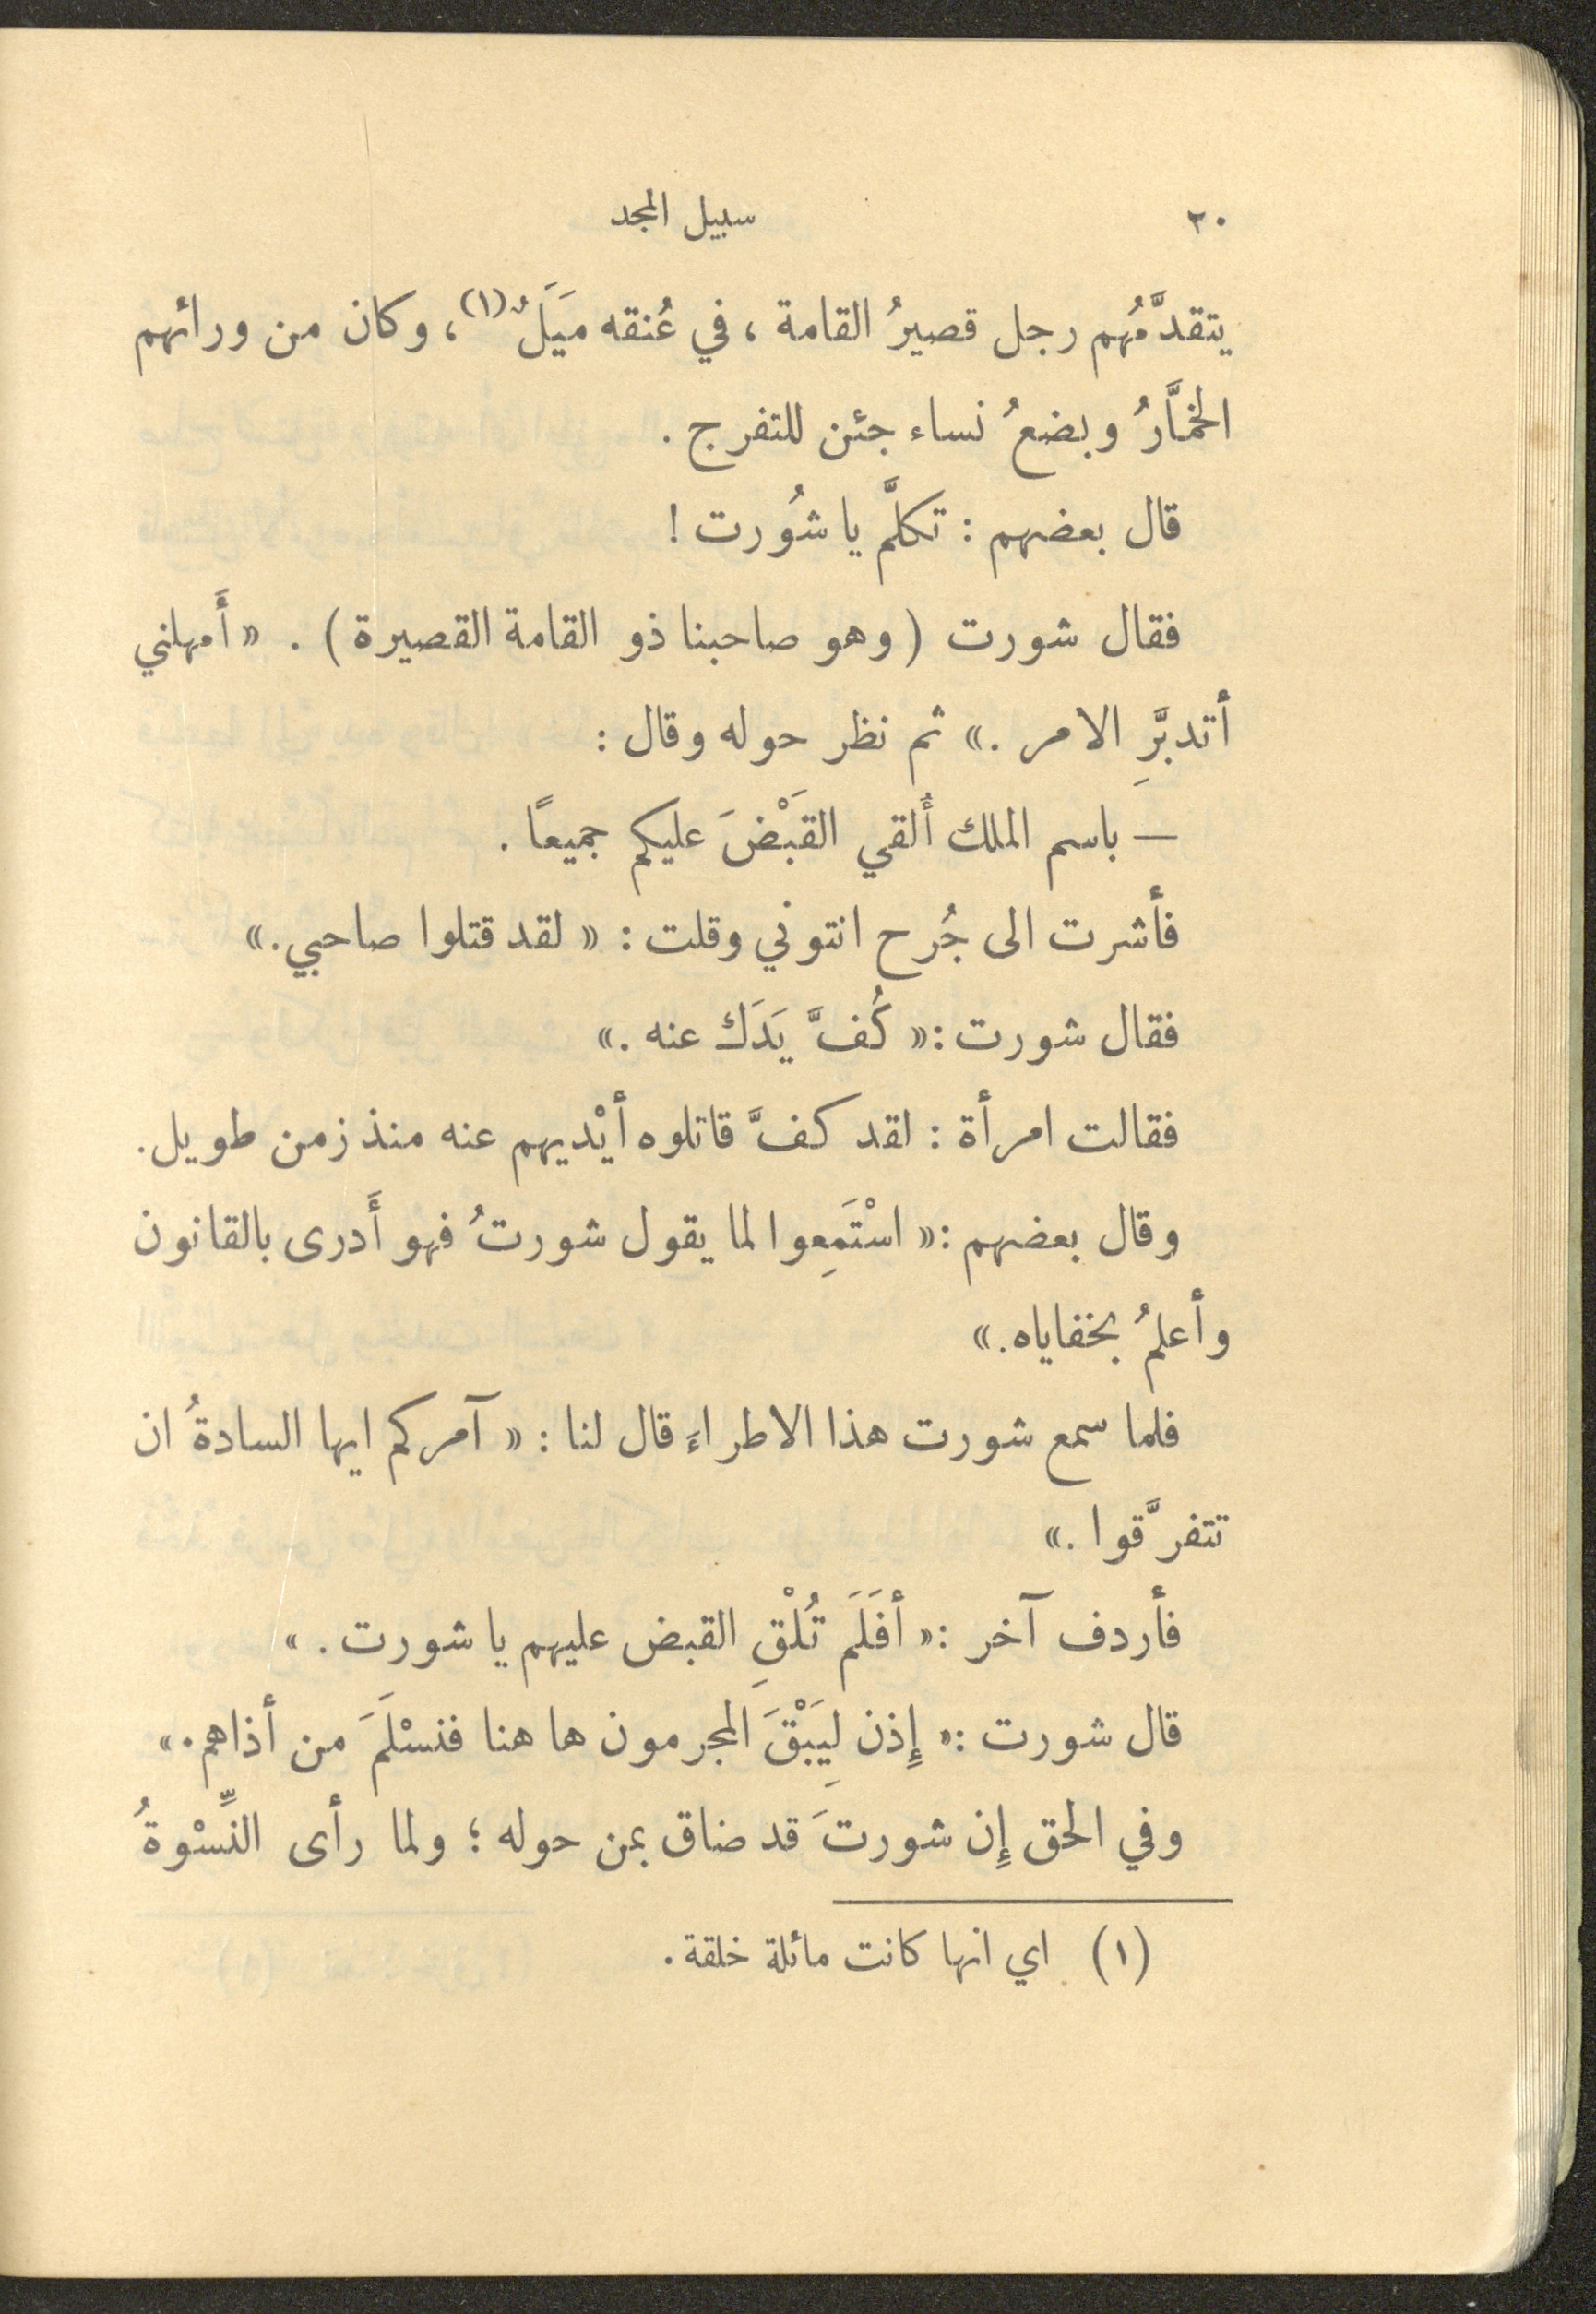 ٣٠ سبيل المجد
يتقدَّمُهم رجل قصيرُ القامة ، في عُنقه مَيَلٌ (١) ، وكان من ورائهم
الخمَّارُ وبضعُ نساء جئن للتفرج .
قال بعضهم : تكلَّم يا شُورت !
فقال شورت (وهو صاحبنا ذو القامة القصيرة) . « أَمهلني
أتدبَّرِ الامر .» ثم نظر حوله وقال :
— باسم الملك أُلقي القَبْضَ عليكم جميعًا .
فأشرت الى جُرح انتوني وقلت : « لقد قتلوا صاحبي.»
فقال شورت :« كُفَّ يَدَك عنه .»
فقالت امرأة : لقد كفَّ قاتلوه أيْديهم عنه منذ زمن طويل.
وقال بعضهم :« اسْتَمِعوا لما يقول شورتُ فهو أَدرى بالقانون
وأعلمُ بخفاياه.»
فلما سمع شورت هذا الاطراءَ قال لنا : « آمركم ايها السادةُ ان
تتفرَّقوا .»
فأردف آخر :« أفَلَم تُلْقِ القبض عليهم يا شورت . »
قال شورت :« إِذن لِيَبْقَ المجرمون ها هنا فنسْلَمَ من أذاهم.»
وفي الحق إِن شورتَ قد ضاق بمن حوله ؛ ولما رأى النِّسْوةُ
(١) اي انها كانت مائلة خلقة .